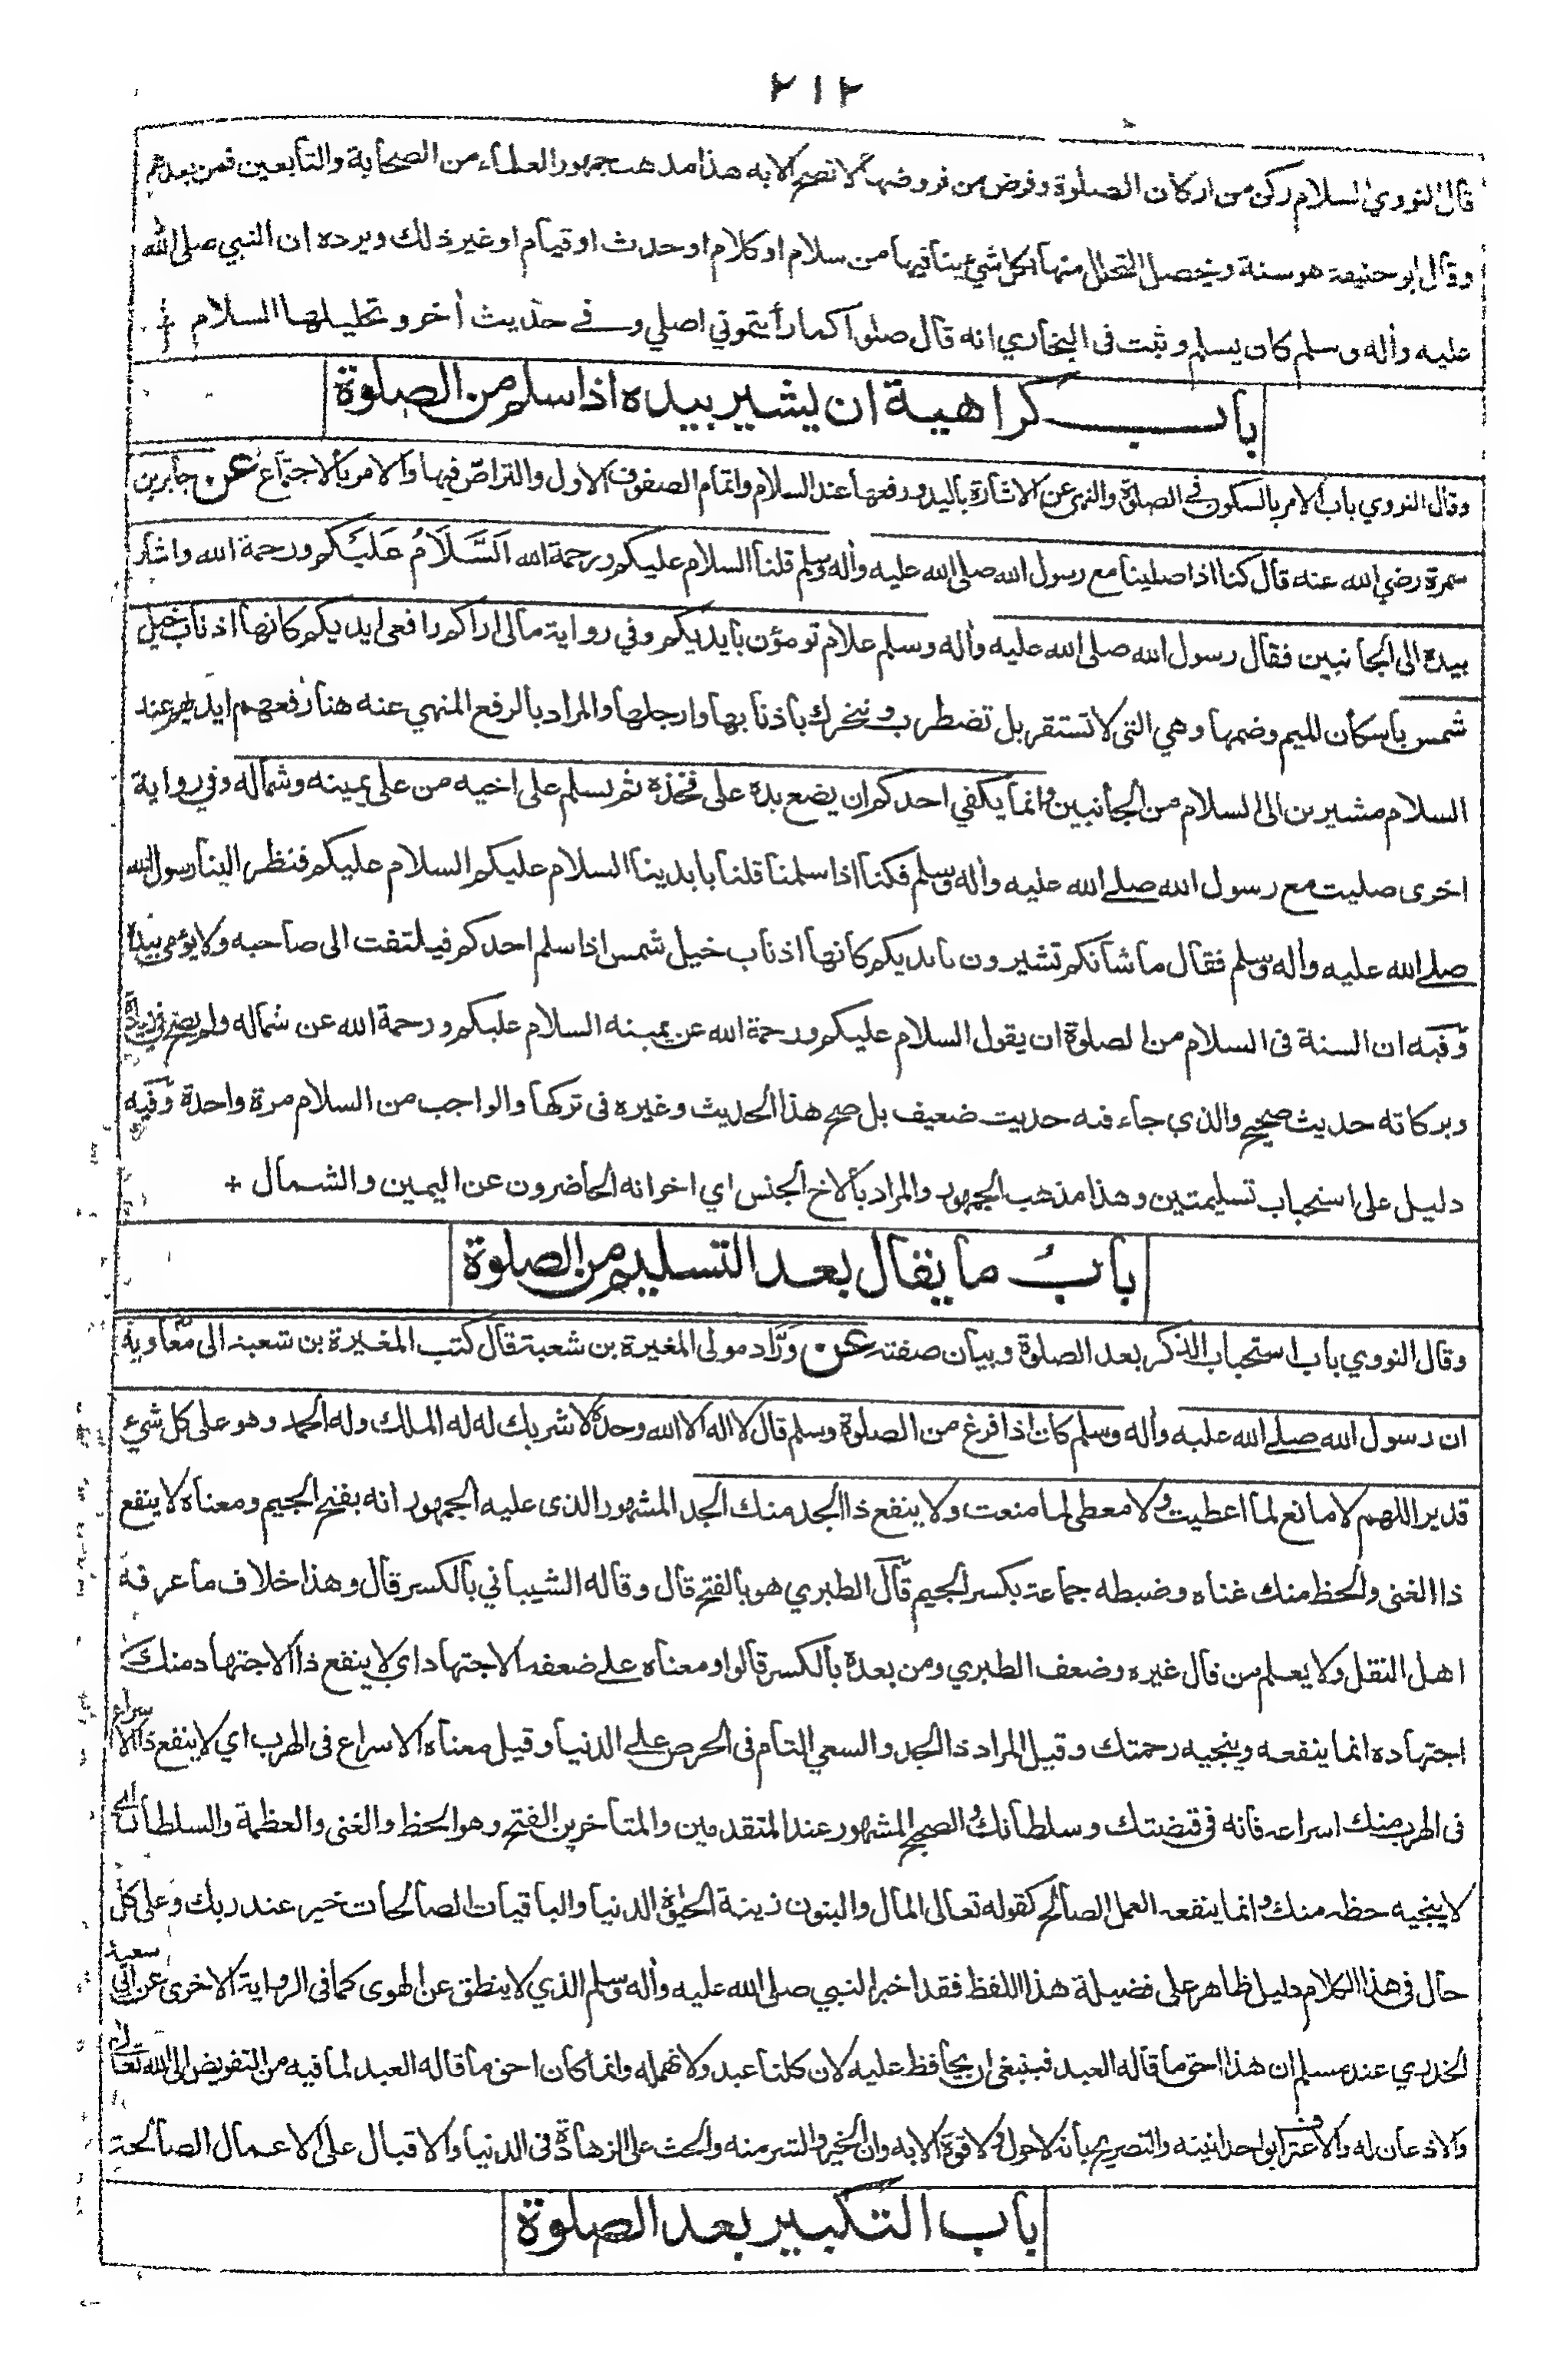 ٢١٢
قال النووي السلام ركن من اركان الصلوة وفرض من فروضها لا تصح الا به هذا مذهب جمهور العلماء من الصحابة والتابعين فمن بعدهم
وقال ابو حنيفة هو سنة ويحصل التحلل منها بكل شيء ينافيها من سلام او كلام او حدث او قيام او غير ذلك ويرده ان النبي صلى الله
عليه وأله وسلم كان يسلم وثبت فى البخاري انه قال صلوا كما رأيتموني اصلي وفي حديث أخر وتحليلها السلام +
باب كراهية ان يشير بيده اذا سلم من الصلوة
وقال النووي باب الامر بالسكون في الصلوة والنهي عن الاشارة باليد ورفعها عند السلام واتمام الصفوف الاول والتراص فيها والامر بالاجتماع عن جابر بن
سمرة رضي الله عنه قال كنا اذا صلينا مع رسول الله صلى الله عليه وأله وسلم قلنا السلام عليكم ورحمة الله السَّلَامُ عَلَيكم ورحمة الله واشار
بيده الى الجانبين فقال رسول الله صلى الله عليه وأله وسلم علام تومؤن بأيديكم وفي رواية مالى اراكم رافعى ايديكم كانها اذناب خيل
شمس بأسكان الميم وضمها وهي التى لا تستقر بل تضطرب وتتحرك باذنابها وارجلها والمراد بالرفع المنهي عنه هنا رفعهم ايديهم عند
السلام مشيرين الى السلام من الجانبين وانما يكفي احدكم ان يضع يده على فخذه ثم يسلم على اخيه من على يمينه وشماله وفي رواية
اخرى صليت مع رسول الله صلے الله عليه وأله وسلم فكنا اذا سلمنا قلنا بايدينا السلام عليكم السلام عليكم فنظر الينا رسول الله
صلے الله عليه وأله وسلم فقال ما شأنكم تشيرون بايديكم كانها اذناب خيل شمس اذا سلم احدكم فيلتفت الى صاحبه ولا يؤمي بيده
وفيه ان السنة فى السلام من الصلوة ان يقول السلام عليكم ورحمة الله عن يمينه السلام عليكم ورحمة الله عن شماله ولم يصح في زيادة
وبركاته حديث صحيح والذي جاء فيه حديث ضعيف بل صح هذا الحديث وغيره فى تركها والواجب من السلام مرة واحدة وفيه
دليل على استحباب تسليمتين وهذا مذهب الجمهور والمراد بألاخ الجنس اي اخوانه الحاضرون عن اليمين والشمال +
بابُ ما يقال بعد التسليم من الصلوة
وقال النووي باب استحباب الذكر بعد الصلوة وبيان صفته عن ورَّاد مولى المغيرة بن شعبة قال كتب المغيرة بن شعبة الى معاوية
ان رسول الله صلے الله عليه وأله وسلم كان اذا فرغ من الصلوة وسلم قال لا اله الا الله وحده لا شريك له له الملك وله الحمد وهو على كل شيء
قدير اللهم لا مانع لما اعطيت ولا معطى لما منعت ولا ينفع ذا الجد منك الجد المشهور الذى عليه الجمهور انه بفتح الجيم ومعناه لا ينفع
ذا الغنى والحظ منك غناه وضبطه جماعة بكسر الجيم قال الطبري هو بالفتح قال وقاله الشيباني بالكسر قال وهذا خلاف ما عرفه
اهل النقل ولا يعلم من قال غيره وضعف الطبري ومن بعده بألكسر قالوا ومعناه علے ضعفه الاجتهاد اي لا ينفع ذا الاجتهاد منك
اجتهاده انما ينفعه وينجيه رحمتك وقيل المراد ذا الجد والسعي التام فى الحرص علے الدنيا وقيل معناه الاسراع فى الهرب اي لا ينفع ذا الاسراع
فى الهرب منك اسراعه فانه فى قبضتك وسلطانك والصحيح المشهور عند المتقدمين والمتأخرين الفتح وهو الحظ والغنى والعظمة والسلطان اي
لا ينجيه حظه منك وانما ينفعه العمل الصالح كقوله تعالى المال والبنون زينة الحيوة الدنيا والباقيات الصالحات خير عند ربك وعلى كل
حال فى هذا الكلام دليل ظاهر على فضيلة هذا اللفظ فقد اخبر النبي صلى الله عليه وأله وسلم الذي لا ينطق عن الهوى كما فى الرواية الاخرى عن ابي سعيد
الخدري عند مسلم ان هذا احق ما قاله العبد فينبغى ان يحافظ عليه لان كلنا عبد ولا نهمله وانما كان احق ما قاله العبد لما فيه من التفويض الى الله تعالى
والاذعان له والاعتراف بواحدانيته والتصريح بأنه لا حول ولا قوة الا به وان الخير والشر منه والحث على الزهادة فى الدنيا والاقبال على الاعمال الصالحة
باب التكبير بعد الصلوة